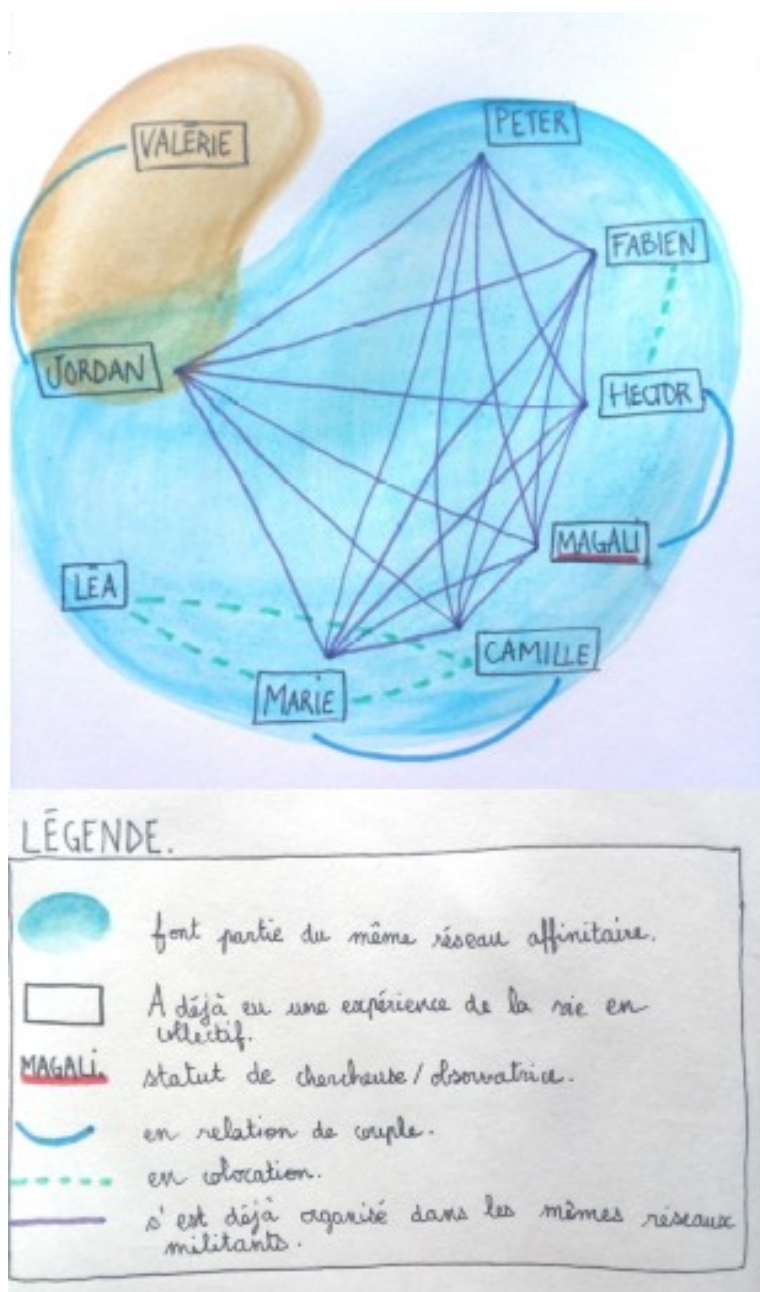 VALĒRIE
PETER
FABIEN
JORDAN
HECTOR
MAGALI
LĒA
CAMILLE
MARIE
LĒGENDE.
font partie du même réseau affinitaire.
A déjà eu une expérience de la vie en
collectif.
MAGALI.
statut de chercheuse/observatrice.
en relation de couple.
en colocation.
s'est déjà organisé dans les mêmes réseaux
militants.